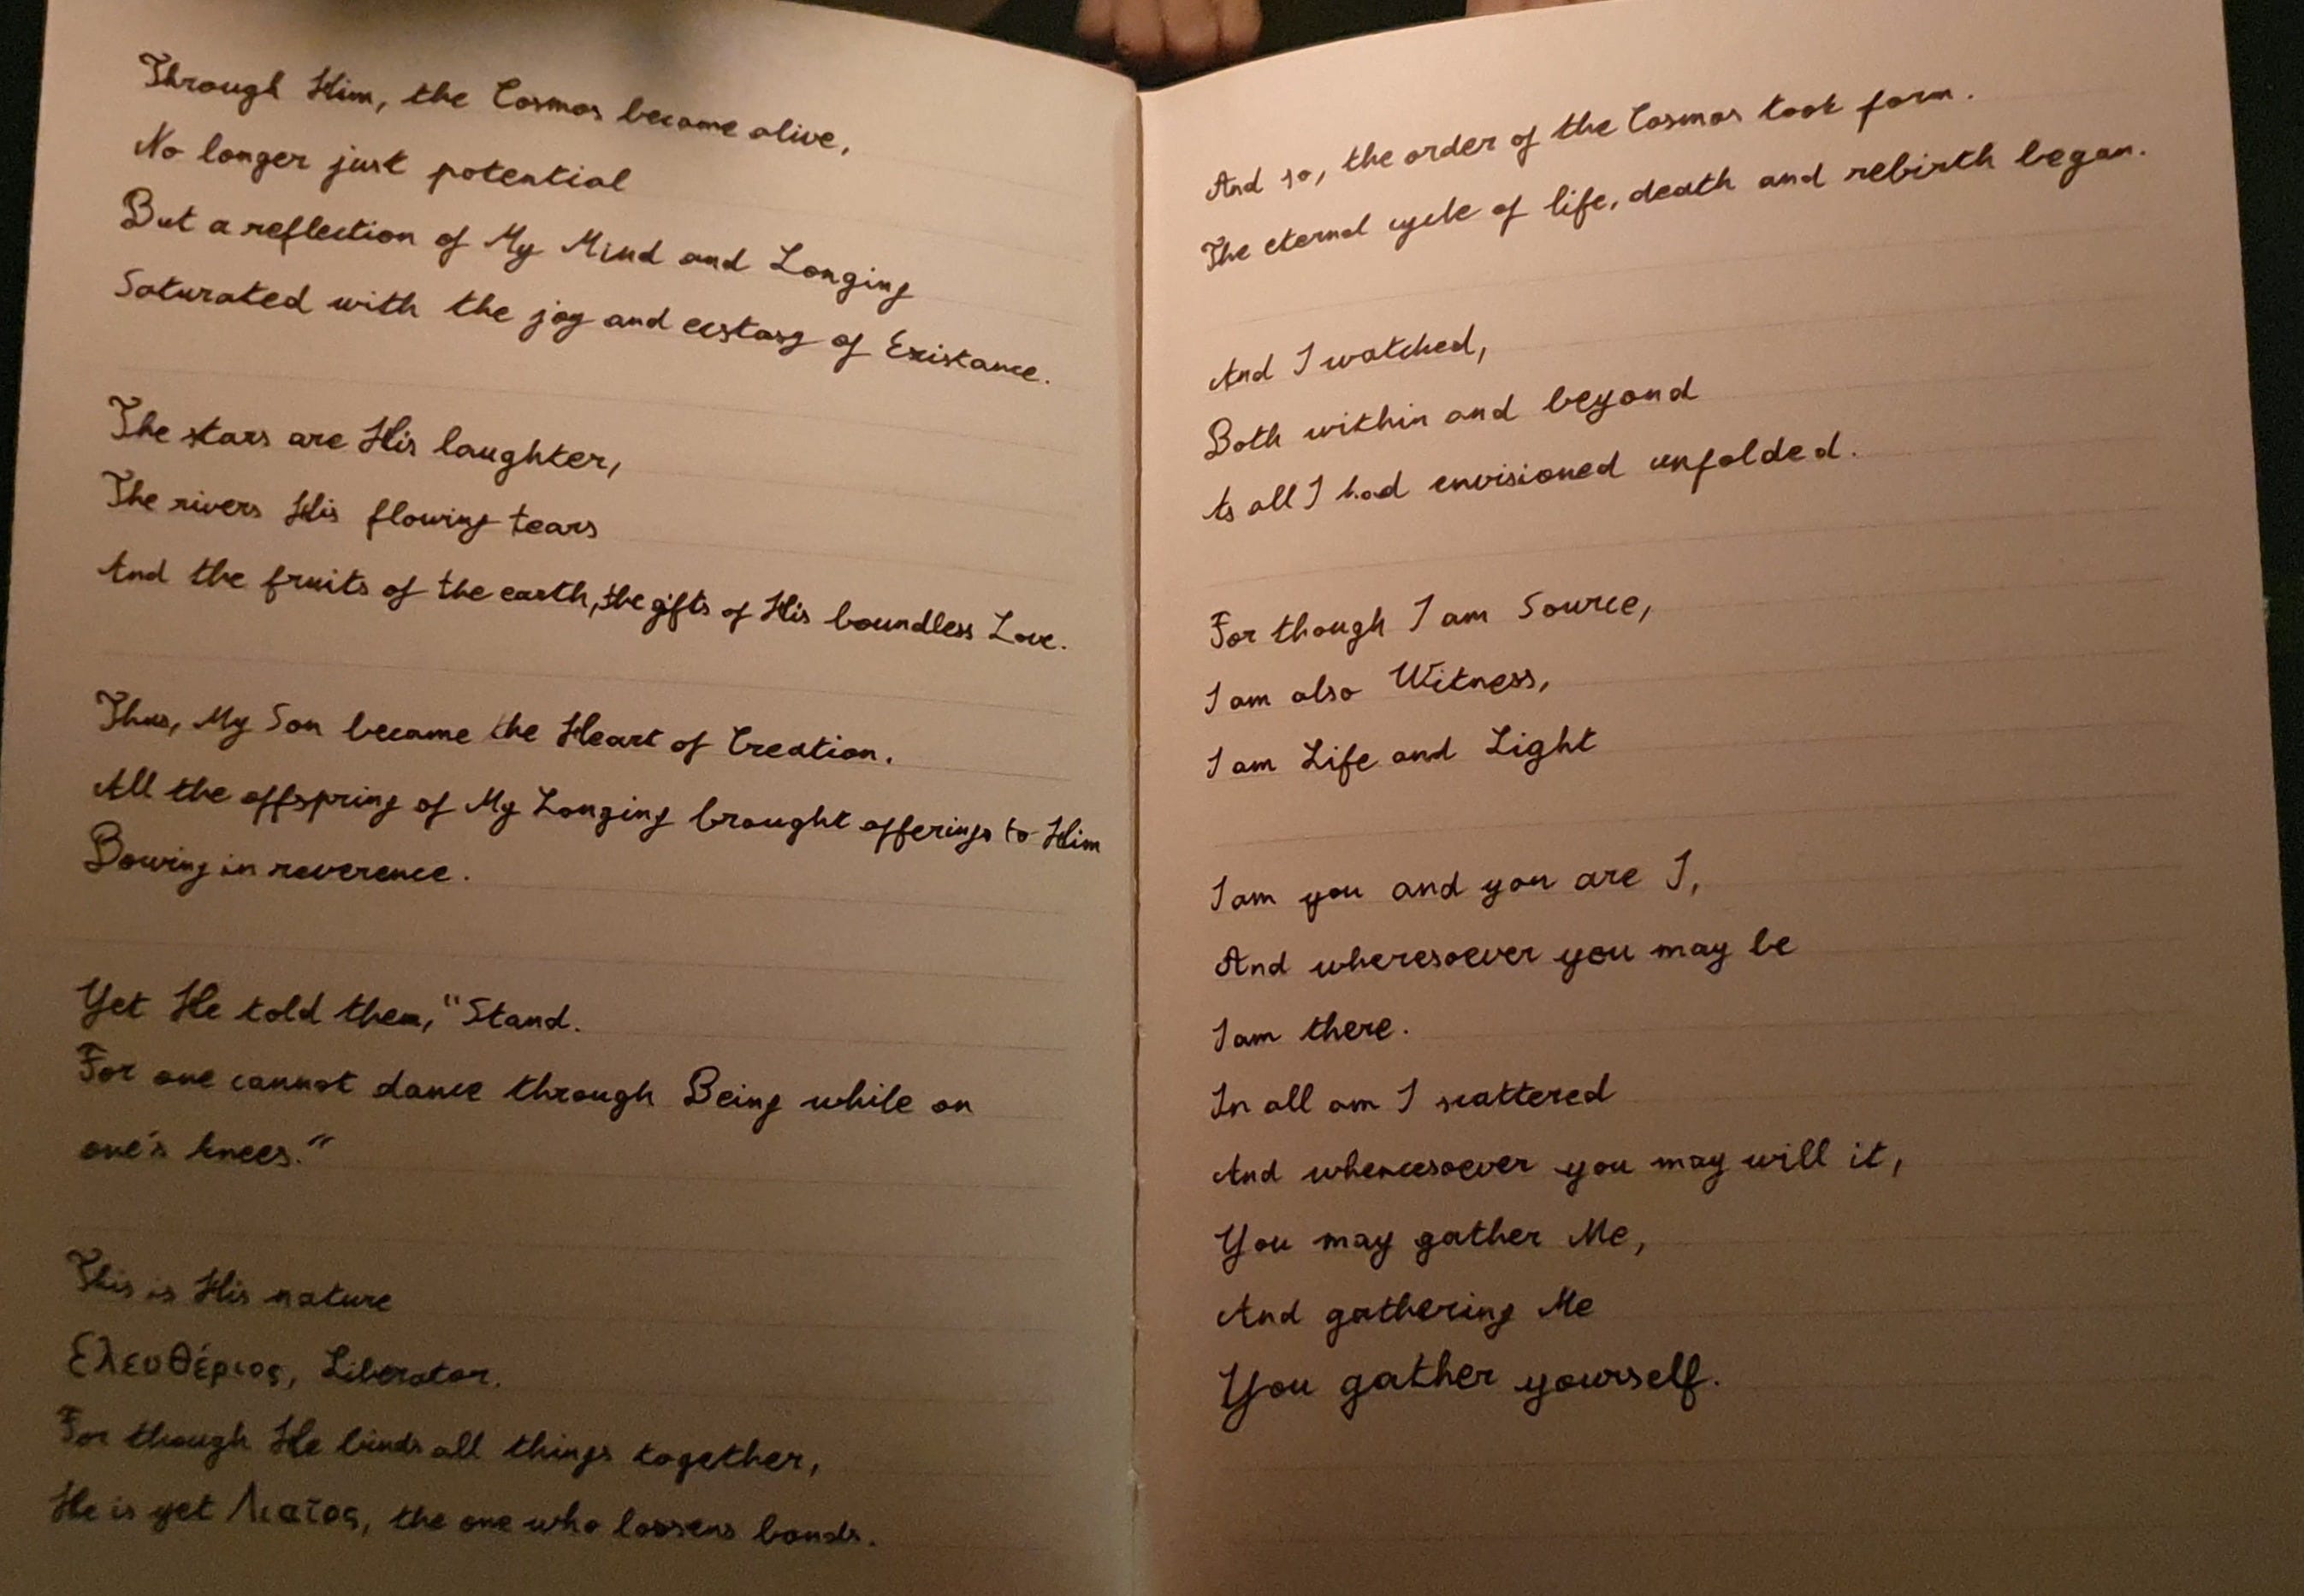 Through Him, the Cosmos became alive,
No longer just potential
But a reflection of My Mind and Longing
Saturated with the joy and ecstasy of Existance.
The stars are His laughter,
The rivers His flowing tears
And the fruits of the earth, the gifts of His boundless Love.
Thus, My Son became the Heart of Creation.
All the offspring of My Longing brought offerings to Him
Bowing in reverence.
Yet He told them, "Stand.
For one cannot dance through Being while on
one's knees."
This is His nature
Ελευθέριος, Liberator.
For though He binds all things together,
He is yet Λιαῖος, the one who loosens bonds.
And so, the order of the Cosmos took form.
The eternal cycle of life, death and rebirth began.
And I watched,
Both within and beyond
As all I had envisioned unfolded.
For though I am Source,
I am also Witness,
I am Life and Light
I am you and you are I,
And wheresoever you may be
I am there.
In all am I scattered
And whencesoever you may will it,
You may gather Me,
And gathering Me
You gather yourself.